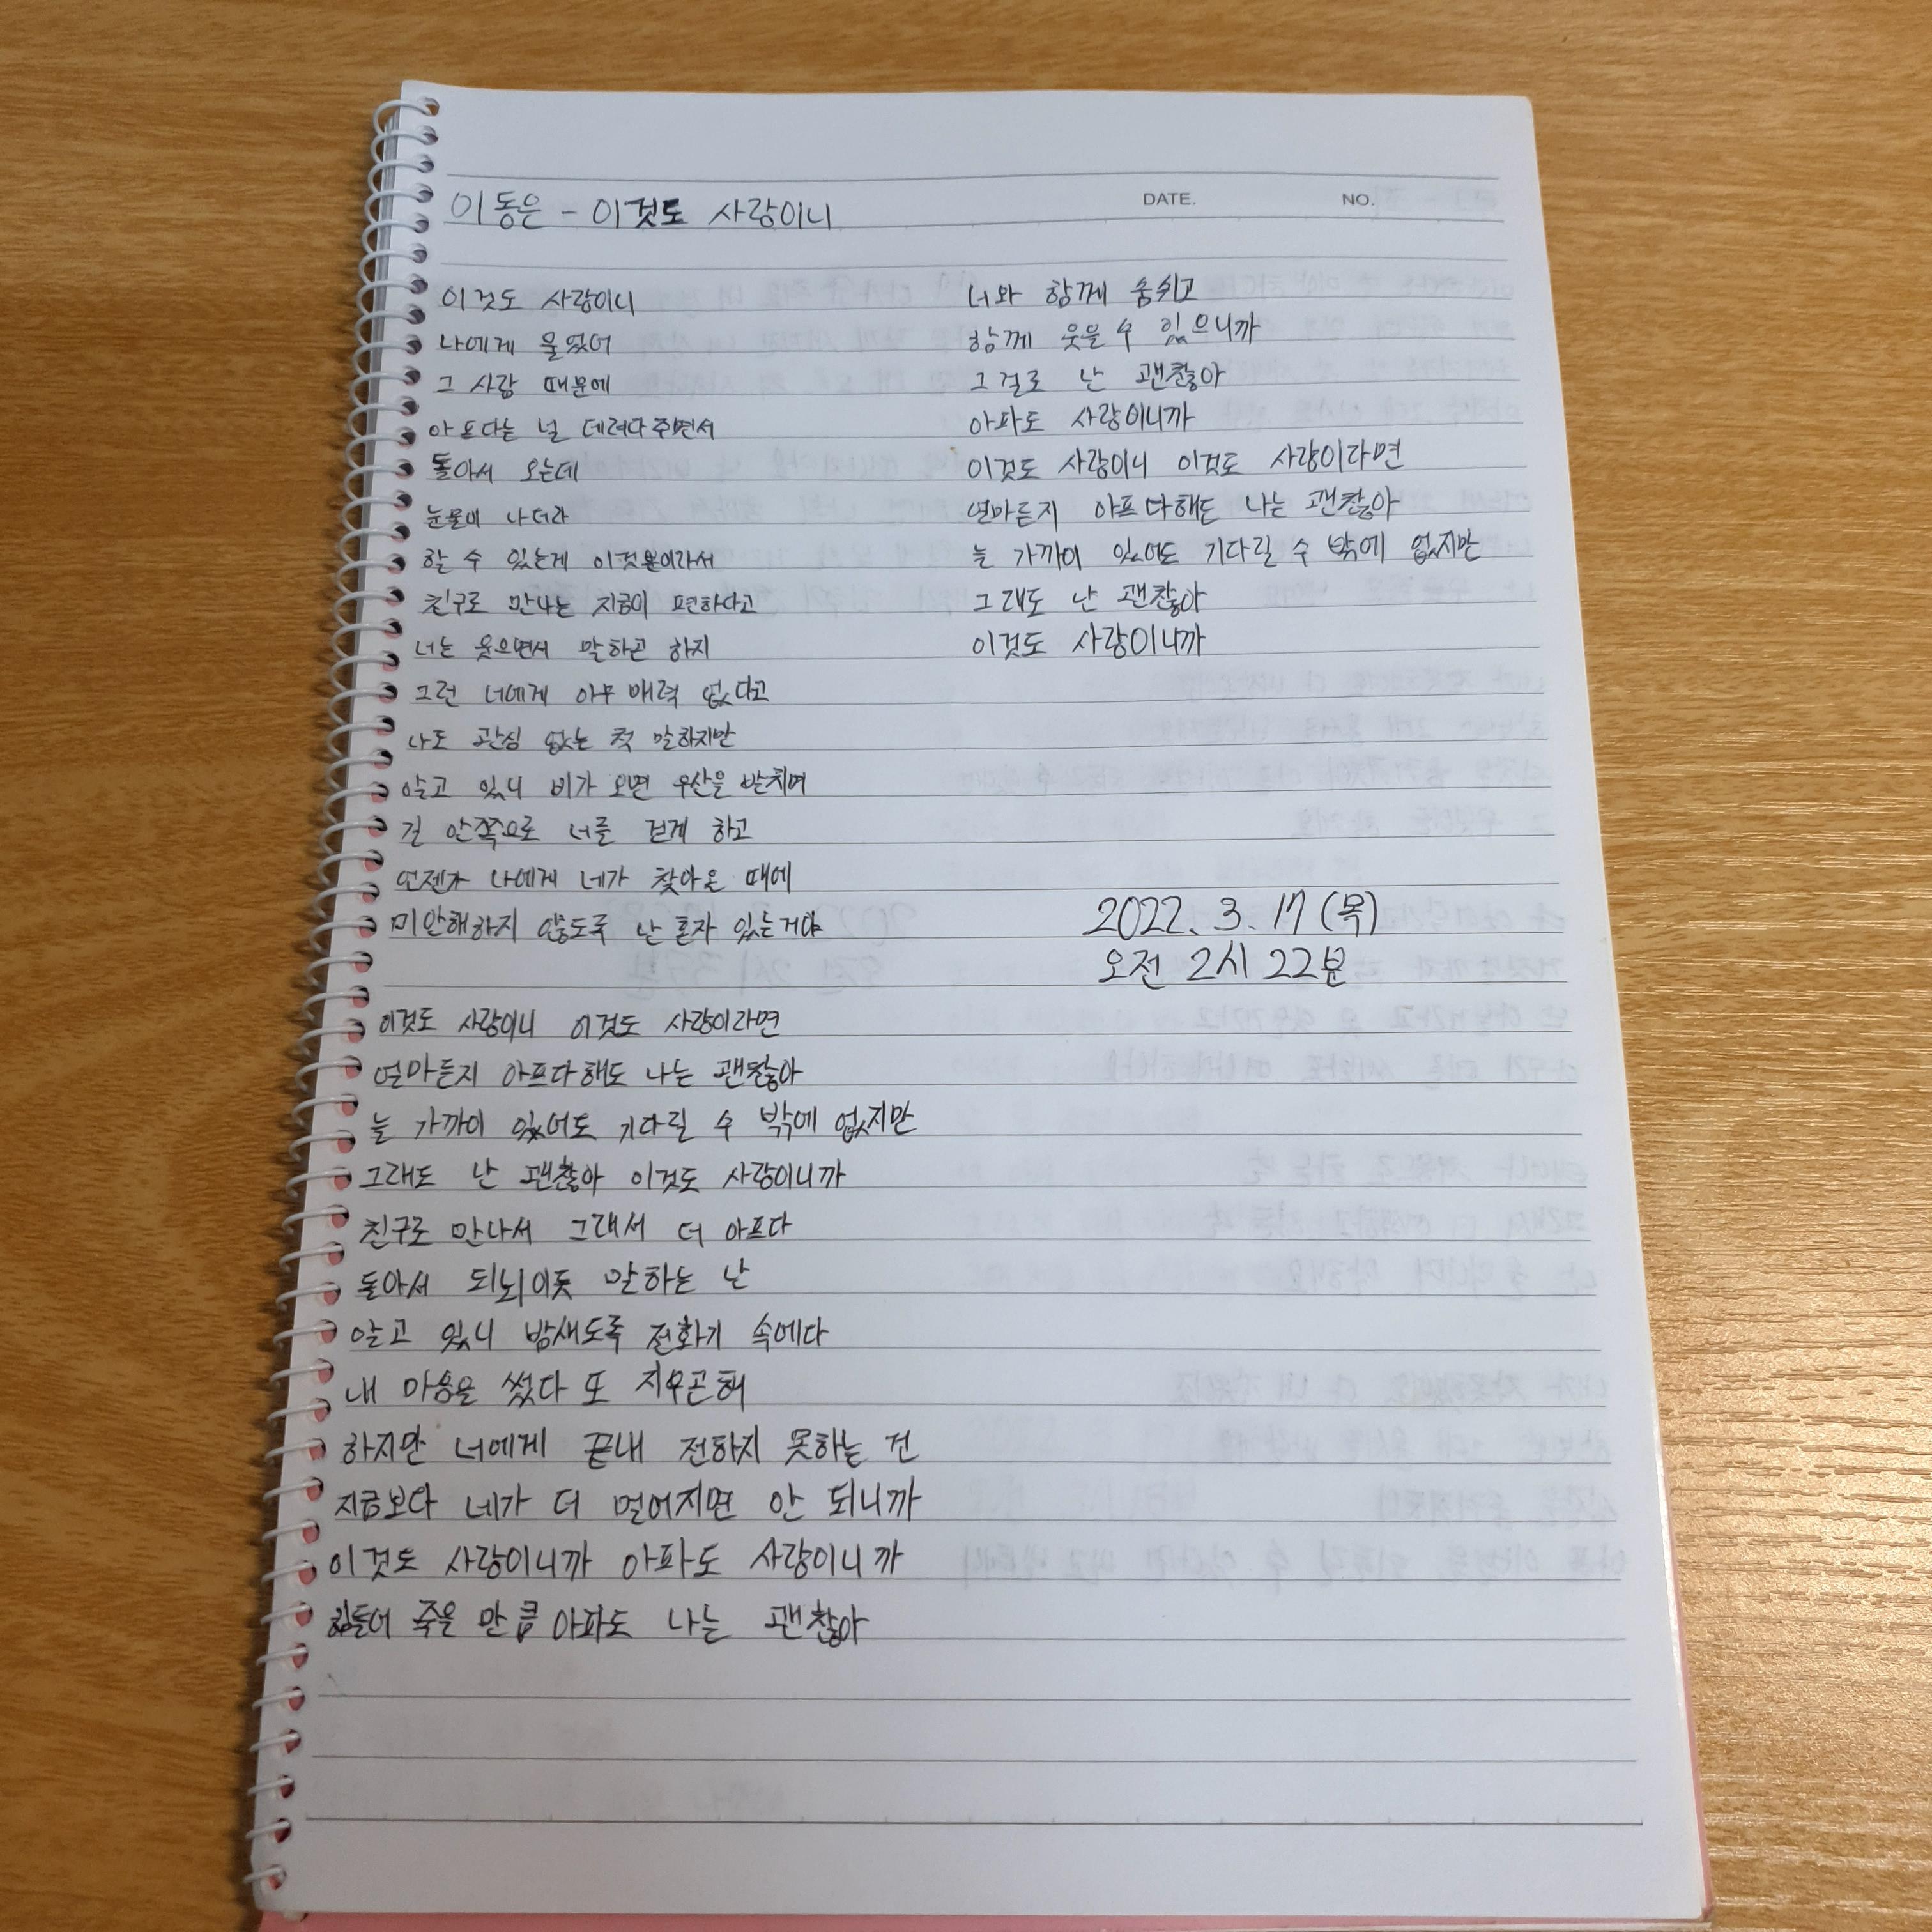 이동은 - 이것도 사랑이니
DATE. NO.
이것도 사랑이니
나에게 물었어
그 사람 때문에
아프다는 널 데려다주면서
돌아서 오는데
눈물이 나더라
할 수 있는게 이것뿐이라서
친구로 만나는 지금이 편하다고
너는 웃으면서 말하곤 하지
그런 너에게 아무 매력 없다고
나도 관심 없는 척 말하지만
알고 있니 비가 오면 우산을 받치며
길 안쪽으로 너를 걷게 하고
언젠가 나에게 네가 찾아올 때에
미안해하지 않도록 난 혼자 있는거야
이것도 사랑이니 이것도 사랑이라면
얼마든지 아프다해도 나는 괜찮아
늘 가까이 있어도 기다릴 수 밖에 없지만
그래도 난 괜찮아 이것도 사랑이니까
친구로 만나서 그래서 더 아프다
돌아서 되뇌이듯 말하는 난
알고 있니 밤새도록 전화기 속에다
내 마음을 썼다 또 지우곤해
하지만 너에게 끝내 전하지 못하는 건
지금보다 네가 더 멀어지면 안 되니까
이것도 사랑이니까 아파도 사랑이니까
힘들어 죽을 만큼 아파도 나는 괜찮아
너와 함께 숨쉬고
함께 웃을 수 있으니까
그걸로 난 괜찮아
아파도 사랑이니까
이것도 사랑이니 이것도 사랑이라면
얼마든지 아프다해도 나는 괜찮아
늘 가까이 있어도 기다릴 수 밖에 없지만
그래도 난 괜찮아
이것도 사랑이니까
2022. 3. 17 (목)
오전 2시 22분